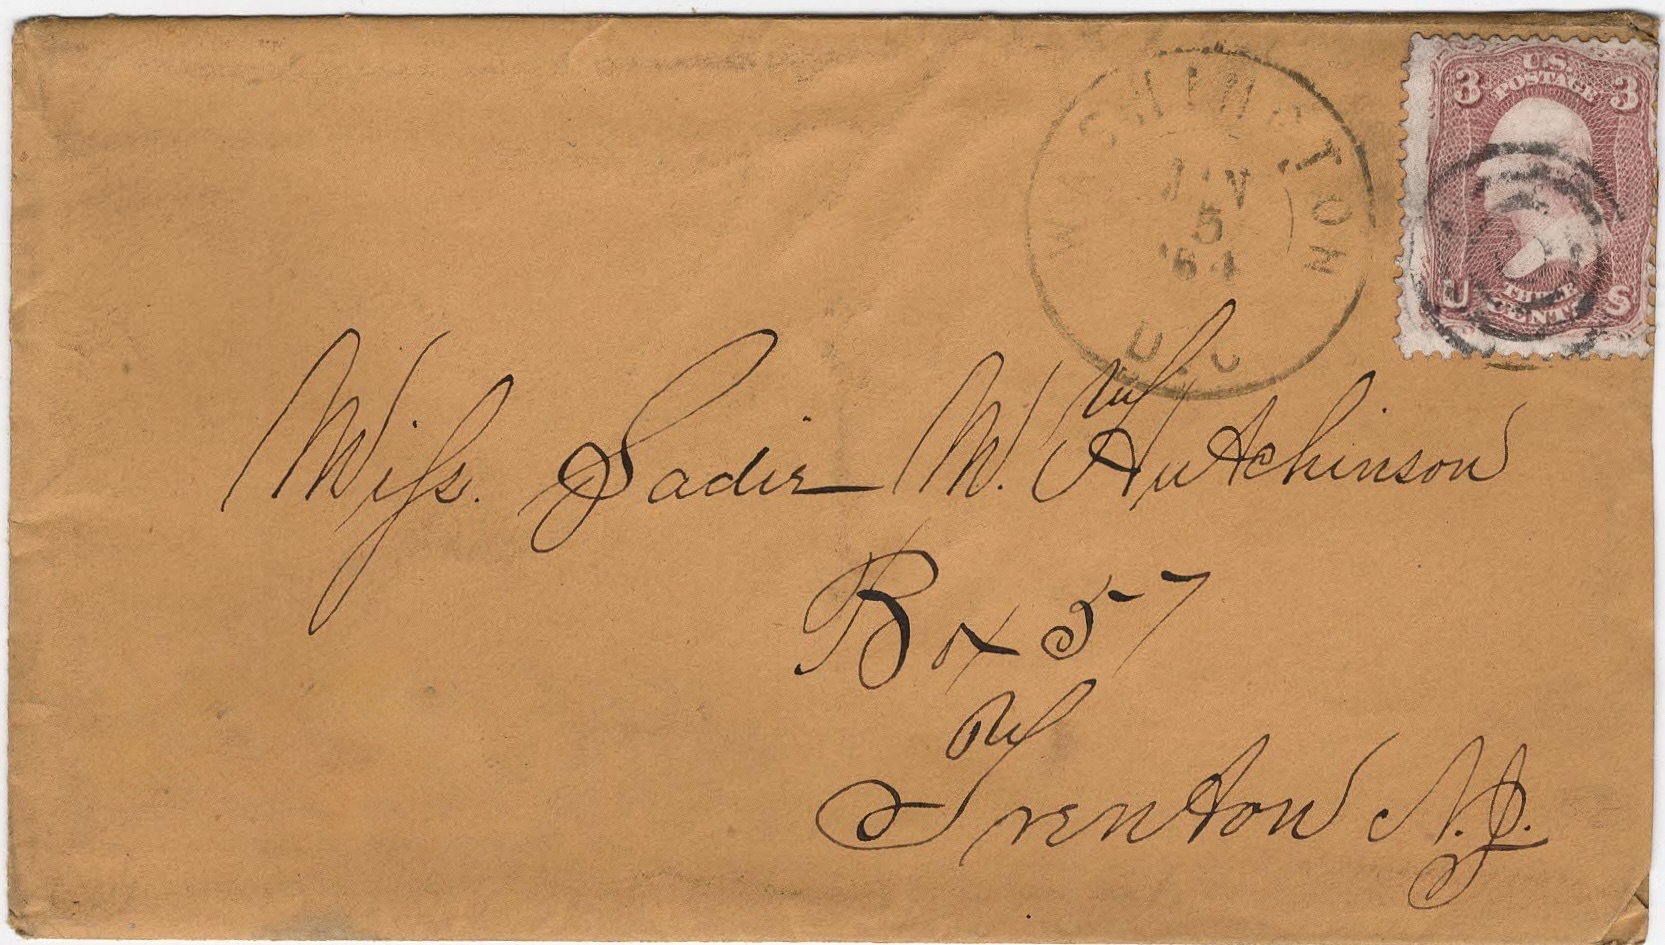 WASHINGTON
JAN
5
'64
D.C.
3 U.S. 3
POSTAGE
U THREE S
CENTS
Miss. Sadie M. Hutchinson
Box 57
Trenton N.J.